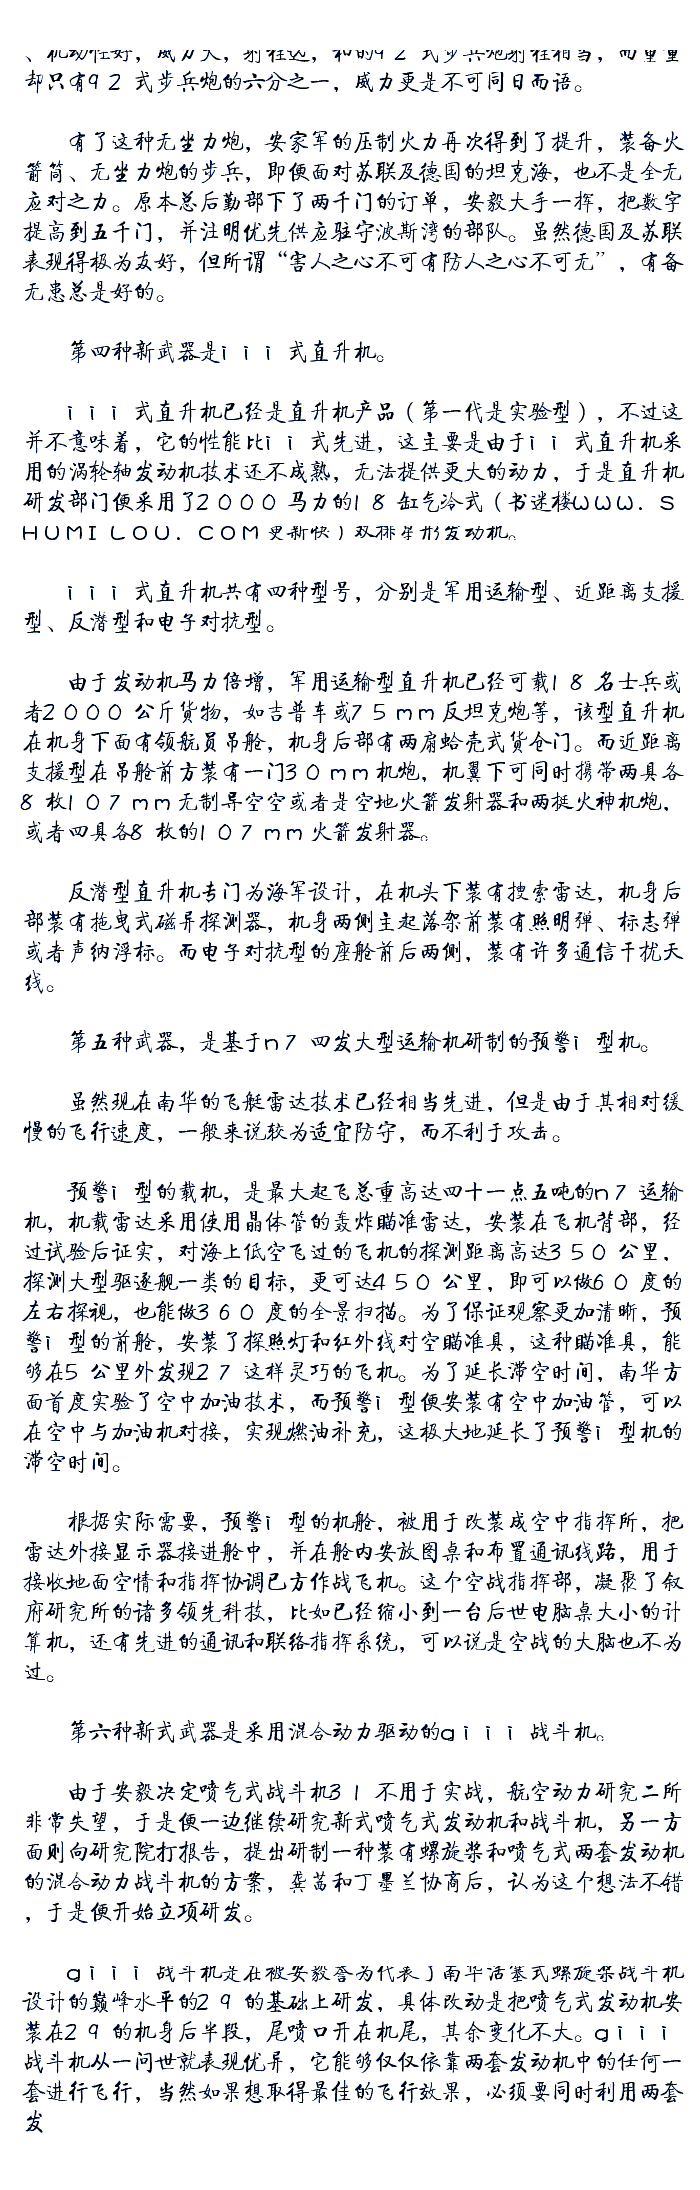 、机动性好，威力大，射程远，和的92 式步兵炮射程相当，而重量
却只有92 式步兵炮的六分之一，威力更是不可同日而语。
有了这种无坐力炮，安家军的压制火力再次得到了提升，装备火
箭筒、无坐力炮的步兵，即便面对苏联及德国的坦克海，也不是全无
应对之力。原本总后勤部下了两千门的订单，安毅大手一挥，把数字
提高到五千门，并注明优先供应驻守波斯湾的部队。虽然德国及苏联
表现得极为友好，但所谓“害人之心不可有防人之心不可无”，有备
无患总是好的。
第四种新武器是iii 式直升机。
iii 式直升机已经是直升机产品（第一代是实验型），不过这
并不意味着，它的性能比ii 式先进，这主要是由于ii 式直升机采
用的涡轮轴发动机技术还不成熟，无法提供更大的动力，于是直升机
研发部门便采用了2000 马力的18 缸气冷式（书迷楼WWW．S
HUMILOU．COM更新快）双排星形发动机。
iii 式直升机共有四种型号，分别是军用运输型、近距离支援
型、反潜型和电子对抗型。
由于发动机马力倍增，军用运输型直升机已经可载18 名士兵或
者2000 公斤货物，如吉普车或75mm反坦克炮等，该型直升机
在机身下面有领航员吊舱，机身后部有两扇蛤壳式货仓门。而近距离
支援型在吊舱前方装有一门30mm机炮，机翼下可同时携带两具各
8 枚107mm无制导空空或者是空地火箭发射器和两挺火神机炮，
或者四具各8 枚的107mm火箭发射器。
反潜型直升机专门为海军设计，在机头下装有搜索雷达，机身后
部装有拖曳式磁异探测器，机身两侧主起落架前装有照明弹、标志弹
或者声纳浮标。而电子对抗型的座舱前后两侧，装有许多通信干扰天
线。
第五种武器，是基于n7 四发大型运输机研制的预警i 型机。
虽然现在南华的飞艇雷达技术已经相当先进，但是由于其相对缓
慢的飞行速度，一般来说较为适宜防守，而不利于攻击。
预警i 型的载机，是最大起飞总重高达四十一点五吨的n7 运输
机，机载雷达采用使用晶体管的轰炸瞄准雷达，安装在飞机背部，经
过试验后证实，对海上低空飞过的飞机的探测距离高达350 公里，
探测大型驱逐舰一类的目标，更可达450 公里，即可以做60 度的
左右探视，也能做360 度的全景扫描。为了保证观察更加清晰，预
警i 型的前舱，安装了探照灯和红外线对空瞄准具，这种瞄准具，能
够在5 公里外发现27 这样灵巧的飞机。为了延长滞空时间，南华方
面首度实验了空中加油技术，而预警i 型便安装有空中加油管，可以
在空中与加油机对接，实现燃油补充，这极大地延长了预警i 型机的
滞空时间。
根据实际需要，预警i 型的机舱，被用于改装成空中指挥所，把
雷达外接显示器接进舱中，并在舱内安放图桌和布置通讯线路，用于
接收地面空情和指挥协调己方作战飞机。这个空战指挥部，凝聚了叙
府研究所的诸多领先科技，比如已经缩小到一台后世电脑桌大小的计
算机，还有先进的通讯和联络指挥系统，可以说是空战的大脑也不为
过。
第六种新式武器是采用混合动力驱动的giii 战斗机。
由于安毅决定喷气式战斗机31 不用于实战，航空动力研究二所
非常失望，于是便一边继续研究新式喷气式发动机和战斗机，另一方
面则向研究院打报告，提出研制一种装有螺旋桨和喷气式两套发动机
的混合动力战斗机的方案，龚茜和丁墨兰协商后，认为这个想法不错
，于是便开始立项研发。
giii 战斗机是在被安毅誉为代表了南华活塞式螺旋桨战斗机
设计的巅峰水平的29 的基础上研发，具体改动是把喷气式发动机安
装在29 的机身后半段，尾喷口开在机尾，其余变化不大。giii
战斗机从一问世就表现优异，它能够仅仅依靠两套发动机中的任何一
套进行飞行，当然如果想取得最佳的飞行效果，必须要同时利用两套
发